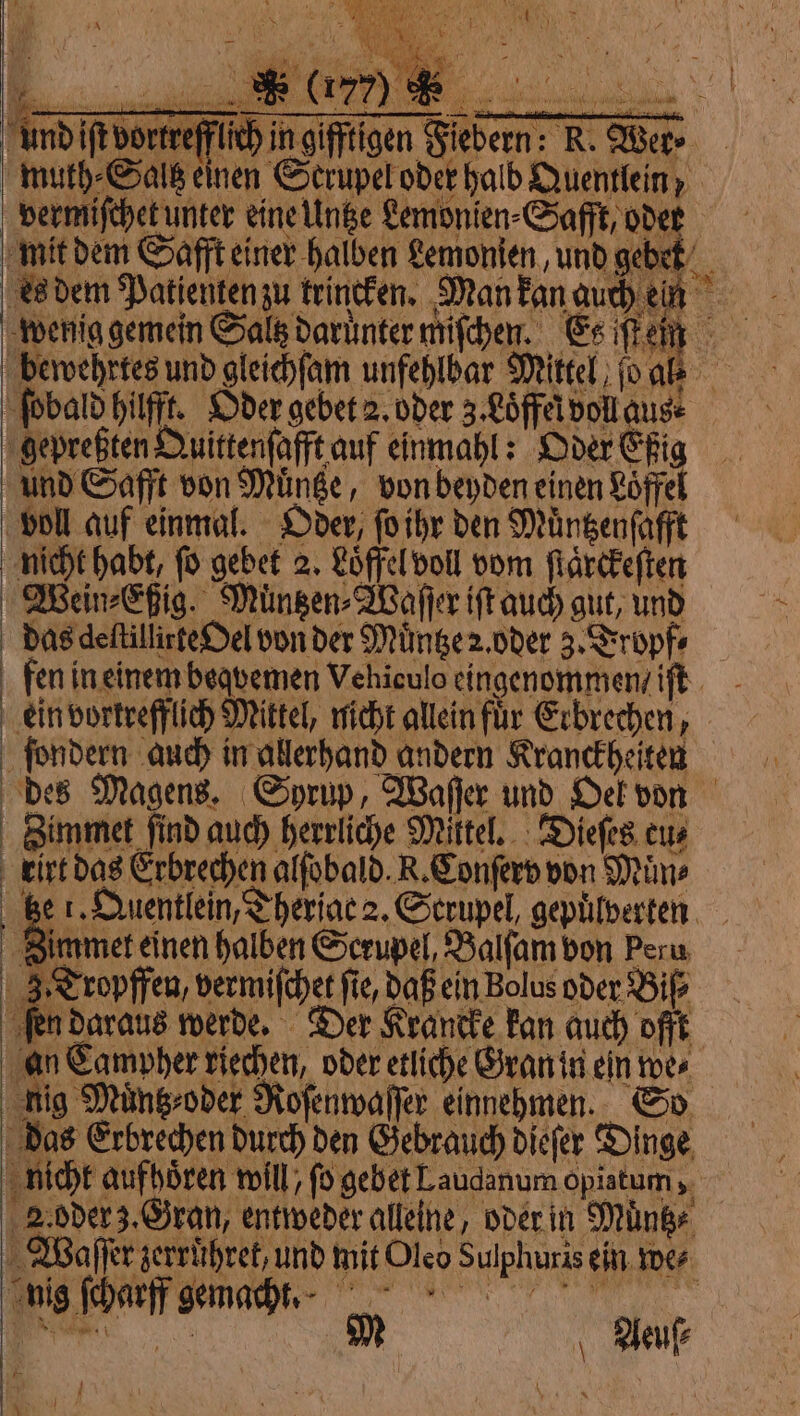 ❧ (177) ❧
und iſt vortrefflich in gifftigen Fiebern: R. Wer⸗
muth⸗Saltz einen Scrupel oder halb Quentlein,
vermiſchet unter eine Untze Lemonien⸗Safft, oder
mit dem Safft einer halben Lemonien, und gebet
es dem Patienten zu trincken. Man kan auch ein
wenig gemein Saltz darunter miſchen. Es iſt ein
bewehrtes und gleichſam unfehlbar Mittel, ſo al⸗
ſobald hilfft. Oder gebet 2. oder 3. Loͤffel voll aus⸗
gepreßten Quittenſafft auf einmahl: Oder Eßig
und Safft von Muͤntze, von beyden einen Loͤffel
voll auf einmal. Oder, ſo ihr den Muͤntzenſafft
nicht habt, ſo gebet 2. Loͤffel voll vom ſtaͤrckeſten
Wein⸗Eßig. Muͤntzen⸗Waſſer iſt auch gut, und
das deſtillirte Oel von der Muͤntze 2. oder 3. Tropf⸗
fen in einem beqvemen Vehiculo eingenommen, iſt
ein vortrefflich Mittel, nicht allein fuͤr Erbrechen,
ſondern auch in allerhand andern Kranckheiten
des Magens. Syrup, Waſſer und Oel von
Zimmet ſind auch herrliche Mittel. Dieſes cu⸗
rirt das Erbrechen alſobald. R. Conſerv von Muͤn⸗
tze 1. Quentlein, Theriac 2. Scrupel, gepuͤlverten
Zimmet einen halben Scrupel, Balſam von Peru
3. Tropffen, vermiſchet ſie, daß ein Bolus oder Biſ⸗
ſen daraus werde. Der Krancke kan auch offt
an Campher riechen, oder etliche Gran in ein we⸗
nig Muͤntz⸗oder Roſenwaſſer einnehmen. So
das Erbrechen durch den Gebrauch dieſer Dinge
nicht aufhoͤren will, ſo gebet Laudanum opiatum,
2. oder 3. Gran, entweder alleine, oder in Muͤntz⸗
Waſſer zerruͤhret, und mit Oleo Sulphuris ein we⸗
nig ſcharff gemacht.
M Aeuſ⸗